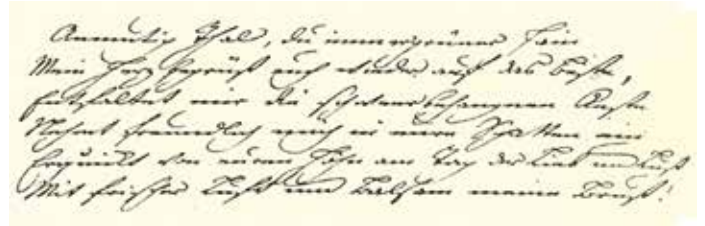 Anmutig Thal, du immergrüner Hain
Mein Herz begrüßt euch wieder auf das Beste,
Entfaltet mir die schwerbehangnen Aeste
Nehmt freundlich mich in eure Schatten ein
Erquickt von euren Höhn am Tag der Lieb und Lust
Mit frischer Luft und Balsam meine Brust!